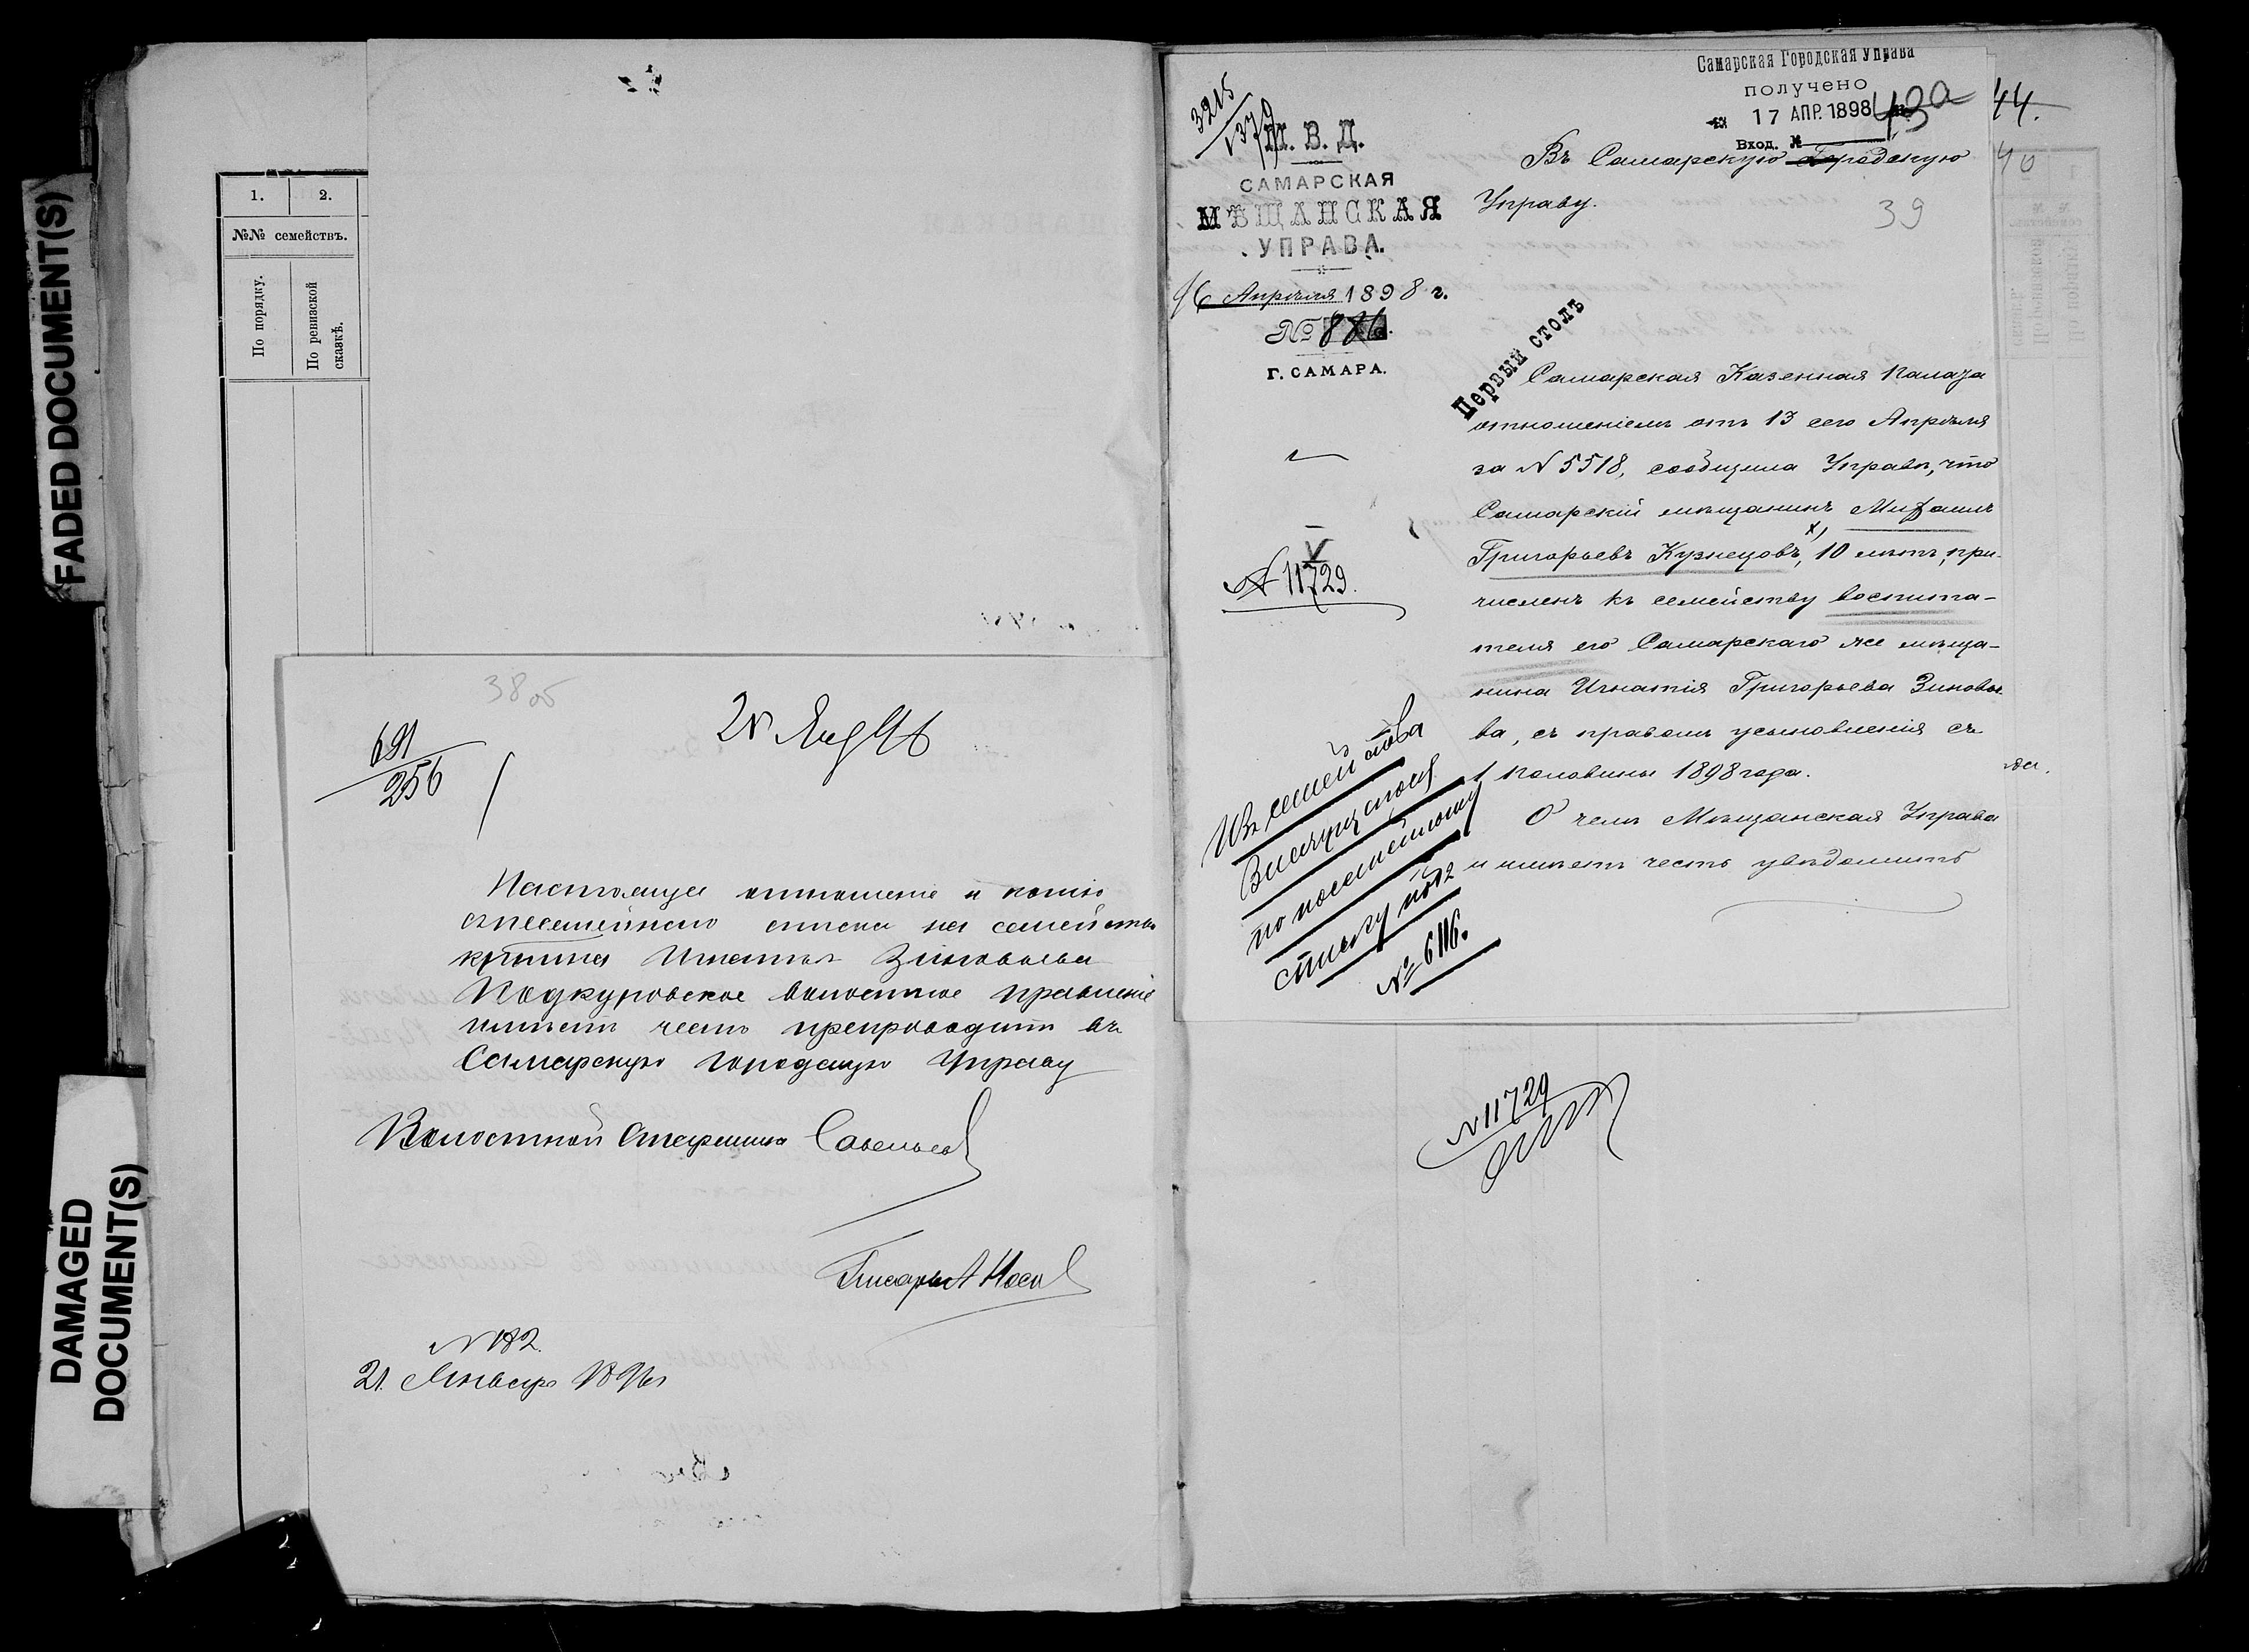 FADED DOCUMENT(S)
DAMAGED
DOCUMENT(S)
1. 2.
№№ семействъ.
По порядку.
По ревизской
сказкѣ.
38 об
691
256
Настоящее отношеніе и копію
списка на семейство
Игнатія Зиновьева
волостное правленіе
имѣетъ честь препроводить въ
Самарскую Городскую Управу
Волостной Старшина Савельев
Писарь А Носов
N 182.
21 Января 1896 г
3215
1379
М. В. Д.
САМАРСКАЯ
МѢЩАНСКАЯ
УПРАВА.
16 Апрѣля 1898 г.
№ 886.
Г. САМАРА.
Самарская Городская Управа
получено
17 АПР. 1898
Вход. №
43а
44.
40
39
Въ Самарскую Городскую
Управу.
Первый столъ
Самарская Казенная Палата
отношеніемъ отъ 13 сего Апрѣля
за N 5518, сообщила Управѣ, что
Самарскій мѣщанинъ Михаилъ
Григорьевъ Кузнецовъ, 10 лѣтъ, при-
численъ къ семейству воспита-
теля его Самарскаго же мѣща-
нина Игнатія Григорьева Зиновье
ва, съ правомъ усыновленія съ
1 половины 1898 года.
О чемъ Мѣщанская Управа
и имѣетъ честь увѣдомить
N 11729.
Изъ семейства
по посемейному
списку 
№ 6116.
N 11729